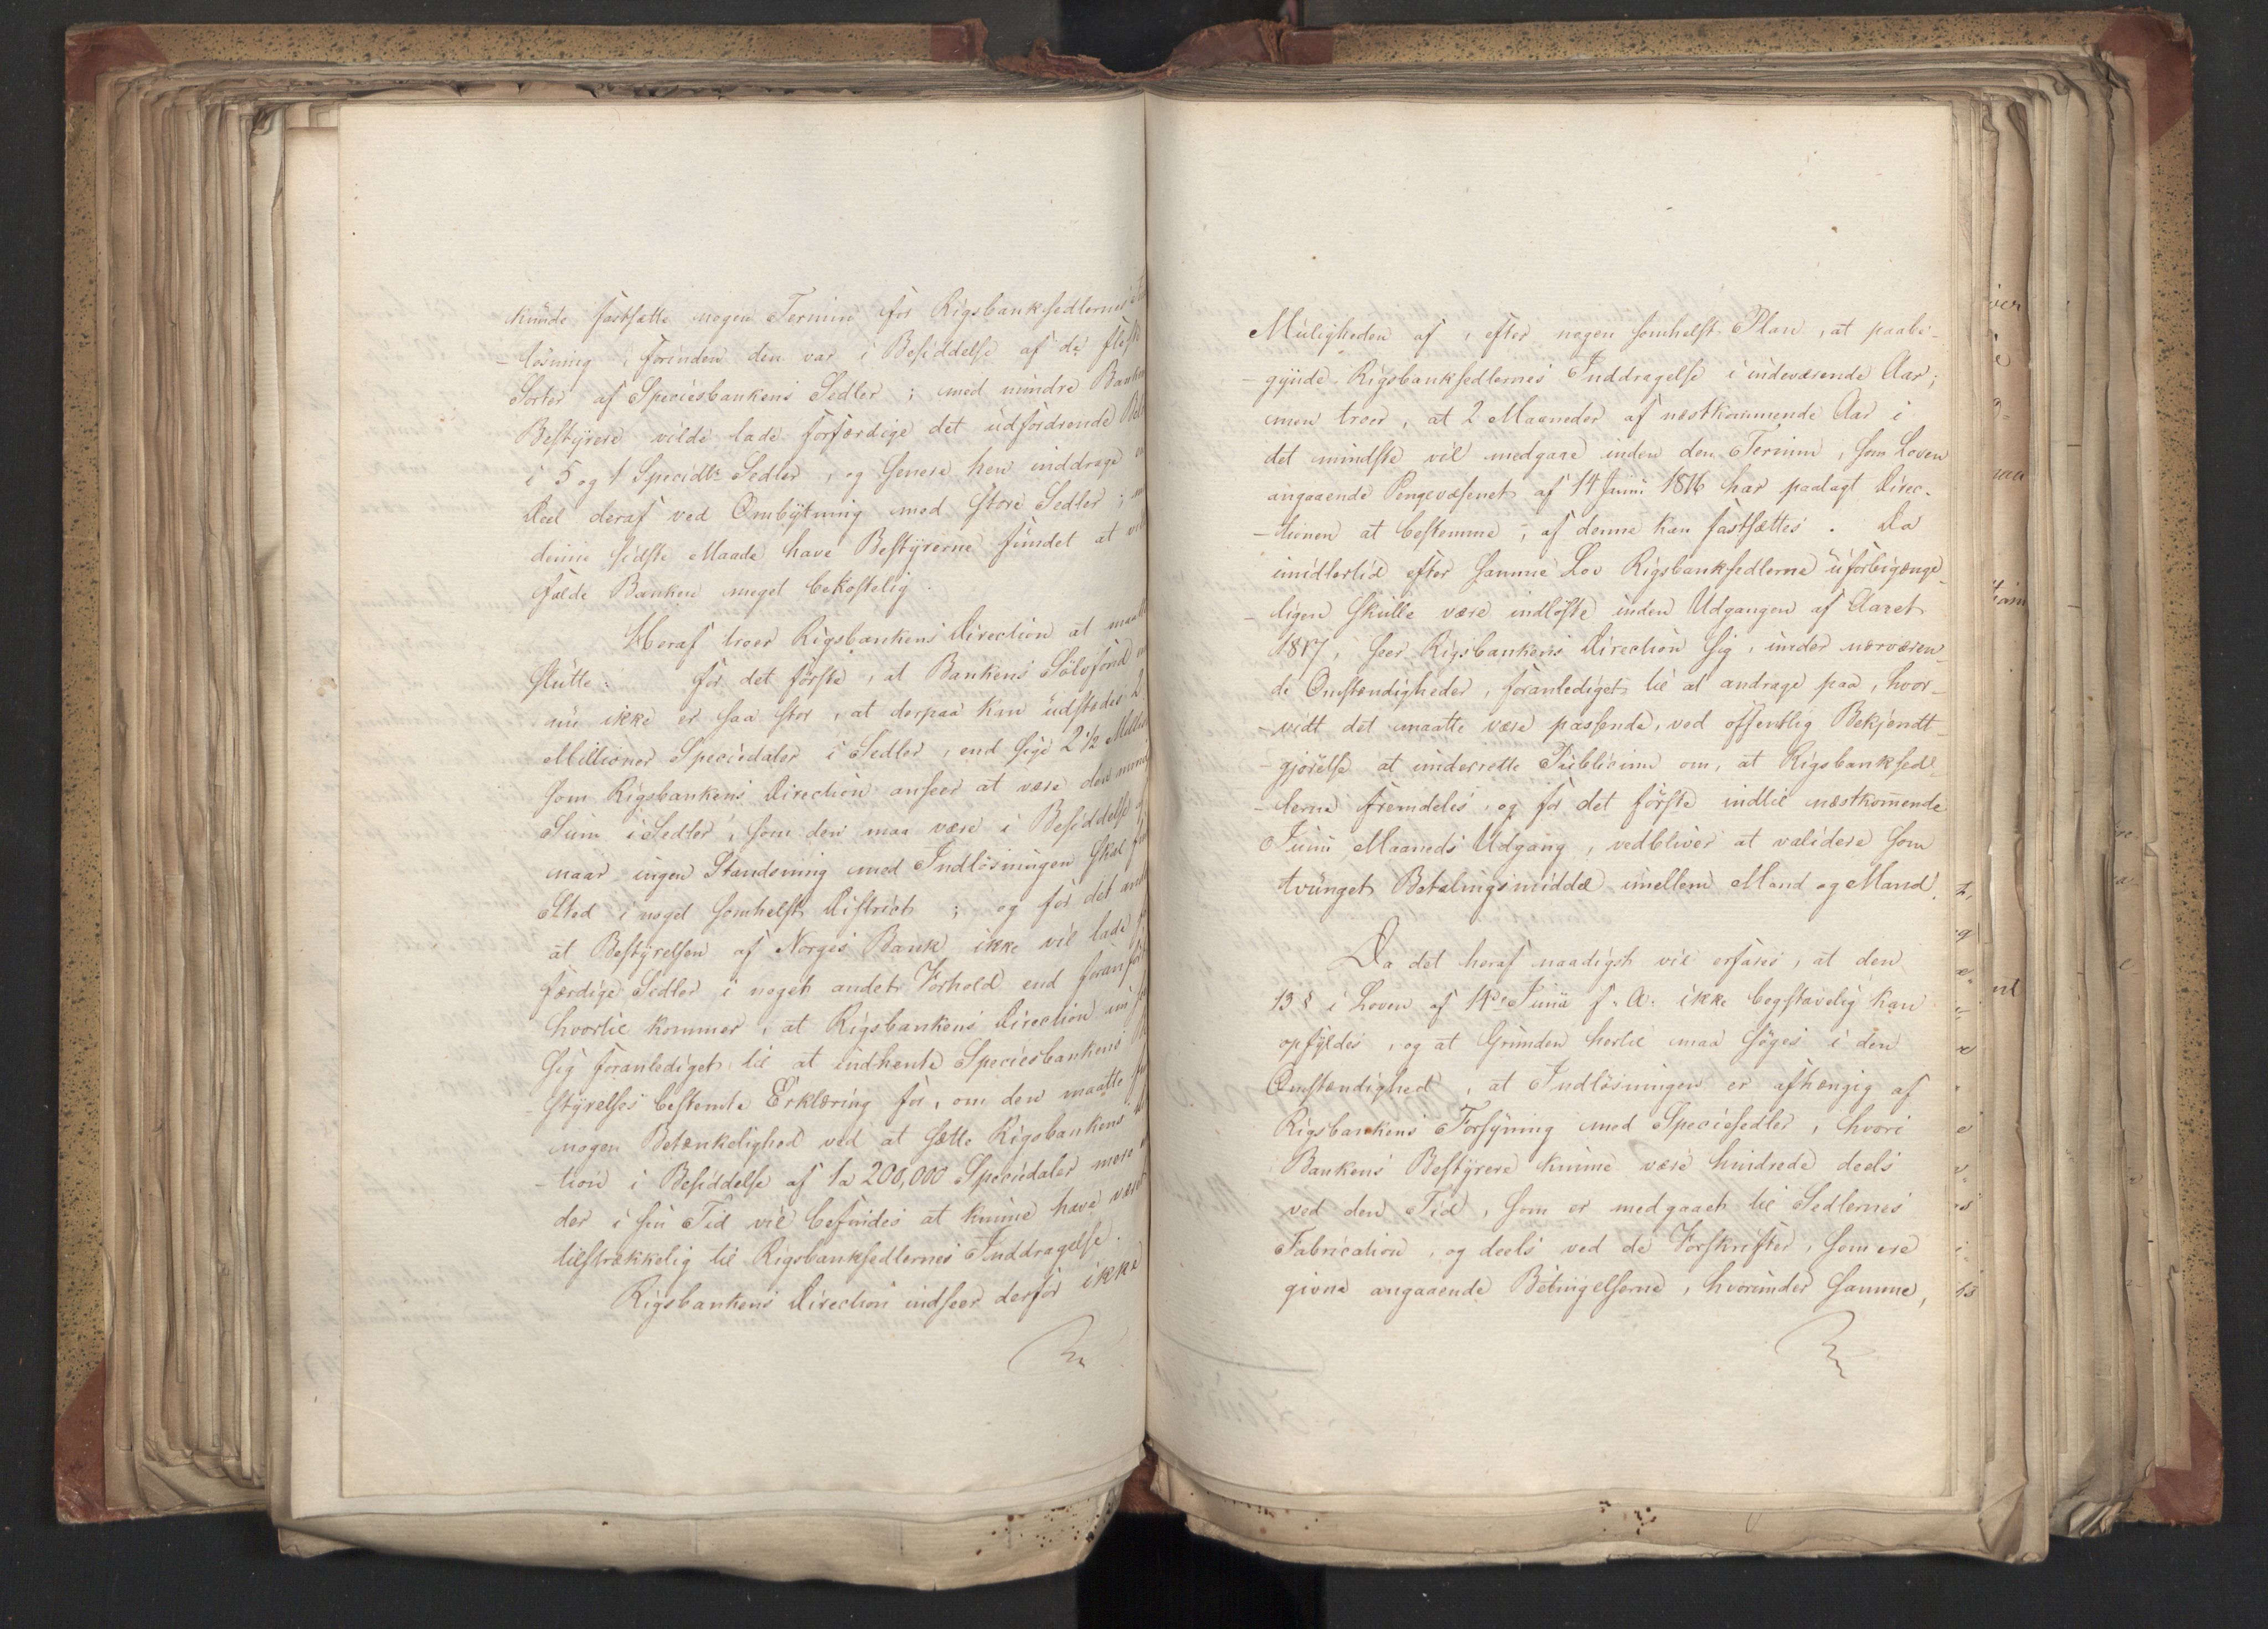 kunde fastsætte nogen Termin for Rigsbanksedlernes
-løsning, forinden den var i Besiddelse af de fleste
Sorter af Speciesbankens Sedler; med mindre Bankens
Bestyrere vilde lade forfærdige det udfordrende
i 5 og 1 Specidlr Sedler, og senere hen inddrage
Deel deraf ved Ombytning med store Sedler;
denne sidste Maade have Bestyrerne fundet at
falde Banken meget bekostelig.
Heraf troer Rigsbankens Direction at maatte
slutte: for det første, at Bankens Sølvfond
nu ikke er saa stor, at derpaa kan udstedes 2
Millioner Speciedaler i Sedler, end sige 2 1/2
som Rigsbankens Direction anseer at være den
Sum i Sedler, som den maa være i Besiddelse af
naar ingen Standsning med Indløsningen skal
Sted i noget somhelst District; og for det andet
at Bestyrelsen af Norges Bank ikke vil lade
færdige Sedler i noget andet Forhold end
hvortil kommer, at Rigsbankens Direction
sig foranlediget til at indhente Speciesbankens
-styrelses bestemte Erklæring for, om den maatte
nogen Betænkelighed ved at sætte Rigsbankens
-tion i Besiddelse af 1 a 200,000 Speciedaler mere
der i sin Tid vil befindes at kunne have været
tilstrækkelig til Rigsbanksedlernes Inddragelse.
Rigsbankens Direction indseer derfor ikke
Muligheden af, efter nogen somhelst Plan, at paabe-
-gynde Rigsbanksedlernes Inddragelse i indeværende Aar;
men troer, at 2 Maaneder af næstkommende Aar i
det mindste vil medgaae inden den Termin, som Loven
angaaende Pengevæsenet af 14 Juni 1816 har paalagt Direc-
-tionen at bestemme, af denne kan fastsættes. Da
imidlertid efter samme Lov Rigsbanksedlerne uforbigænge-
-ligen skulle være indløste inden Udgangen af Aaret
1817, seer Rigsbankens Direction sig, under nærværen-
de Omstændigheder, foranlediget til at andrage paa, hvor-
-vidt det maatte være passende, ved offentlig Bekjendt-
-gjørelse at underrette Publicum om, at Rigsbanksed-
-lerne fremdeles, og for det første indtil næstkomende
Juni Maaneds Udgang, vedbliver at validere som
tvunget Betalingsmiddel imellem Mand og Mand.
Da det heraf naadigst vil erfares, at den
13 § i Loven af 14de Juni f. A. ikke bogstavelig kan
opfyldes, og at Grunden hertil maa søges i den
Omstændighed, at Indløsningen er afhængig af
Rigsbankens Forsyning med Speciesedler, hvori
Bankens Bestyrere kunne være hindrede deels
ved den Tid, som er medgaaet til Sedlernes
Fabrication, og deels ved de Forskrifter, som ere
givne angaaende Betingelserne, hvorunder samme,